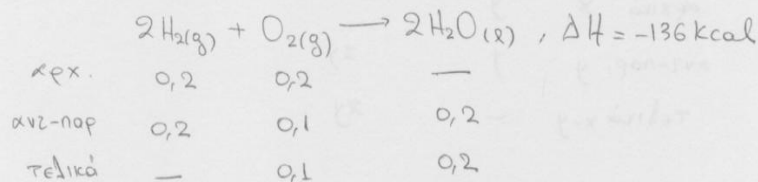 2H₂(g) + O₂(g) ⟶ 2H₂O(l) , ΔH = -136 kcal
αρχ. 0,2 0,2 —
αντ-παρ 0,2 0,1 0,2
τελικά — 0,1 0,2